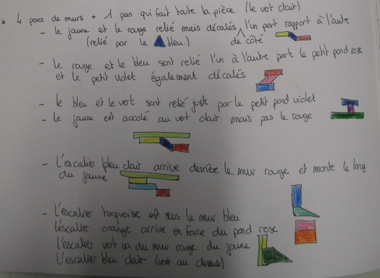 4 pans de murs + 1 pan qui fait toute la pièce (le vert clair)
- le jaune et le rouge relié mais décalés l'un part rapport à l'autre
(relié par le bleu) de côté
- le rouge et le bleu sont relié l'un à l'autre part le petit pond rose
et le petit violet également décalés
- le bleu et le vert sont relié juste par le petit pond violet
- le jaune est accolé au vert clair mais pas le rouge
- L'escalier bleu clair arrive derrière le mur rouge et monte le long
du jaune
- L'escalier turquoise est sur le mur bleu
L'escalier orange arrive en face du pond rose
L'escalier vert va du mur rouge au jaune
L'escalier bleu clair (voir au dessus)